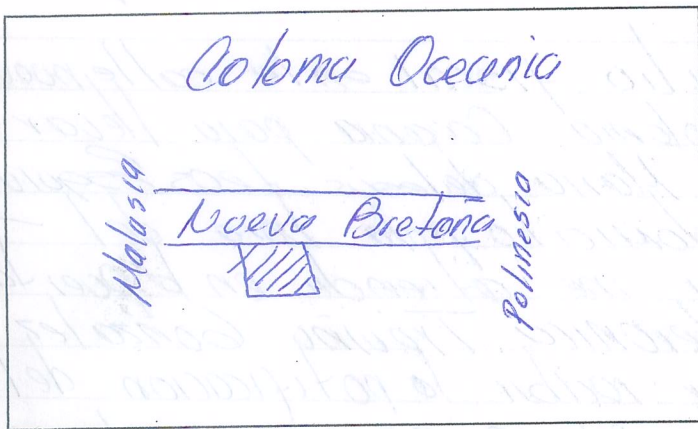 Colonia Oceania
Malasia
Nueva Bretaña
Polinesia